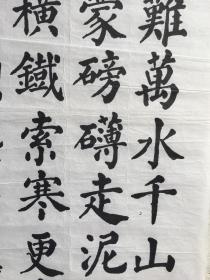 難萬水千山
蒙磅礴走泥
橫鐵索寒更